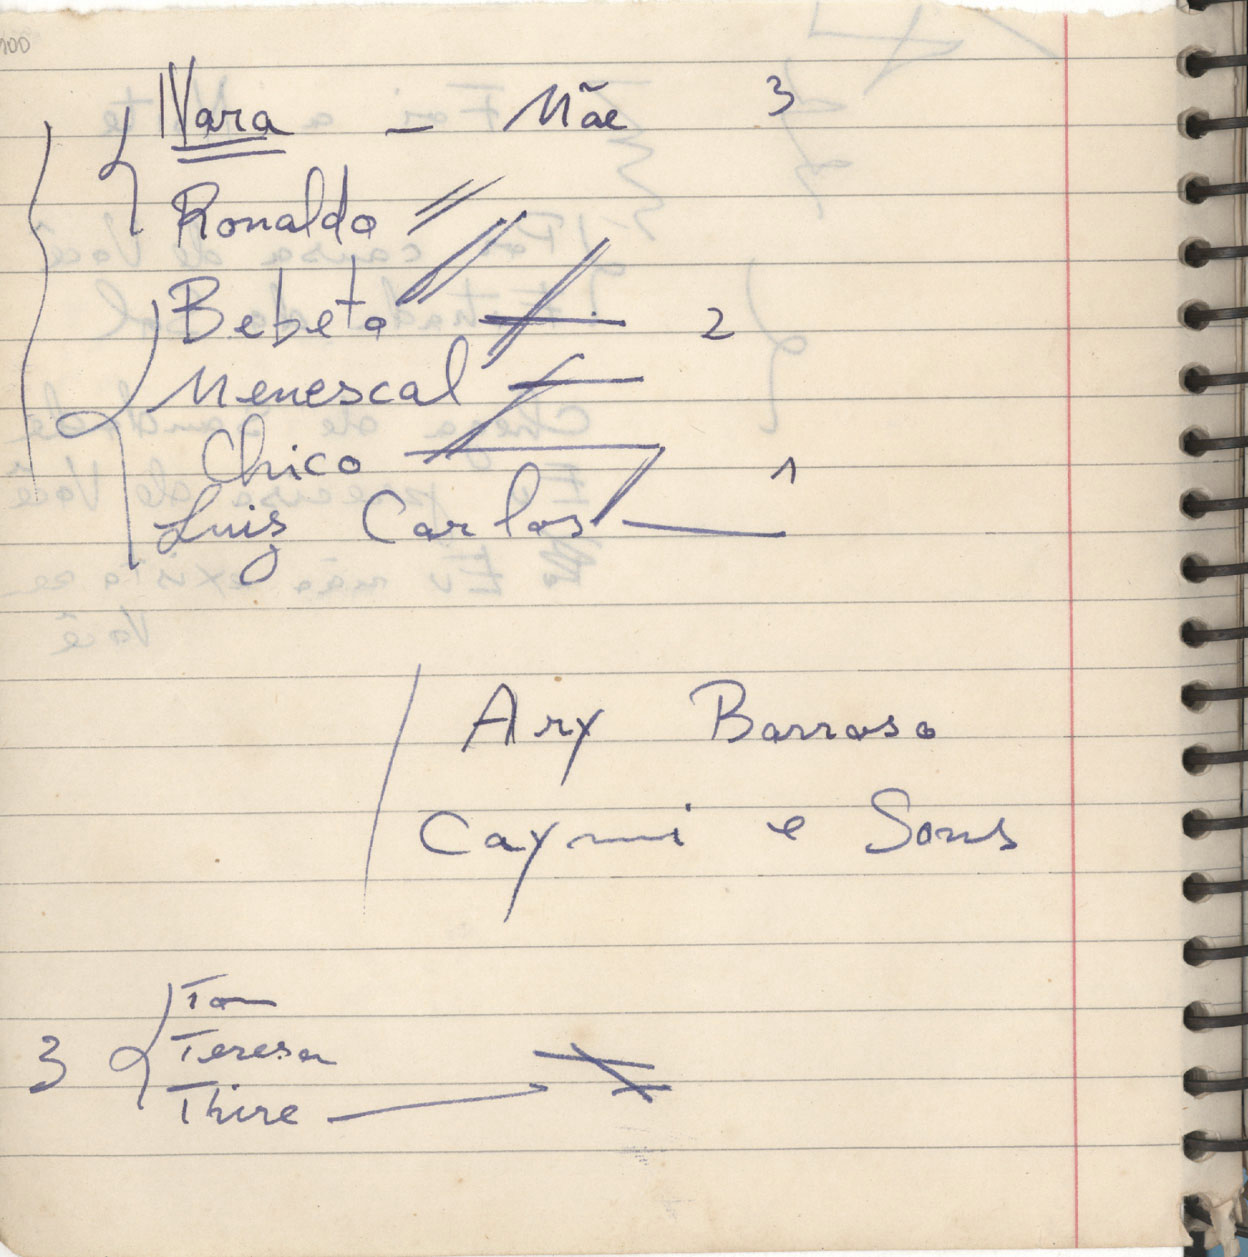 Nara - Mãe 3
Ronaldo
Bebeto 2
Menescal
Chico 1
Luis Carlos
Ary Barroso
Caymi e Sons
3
Tom
Teresa
Thire